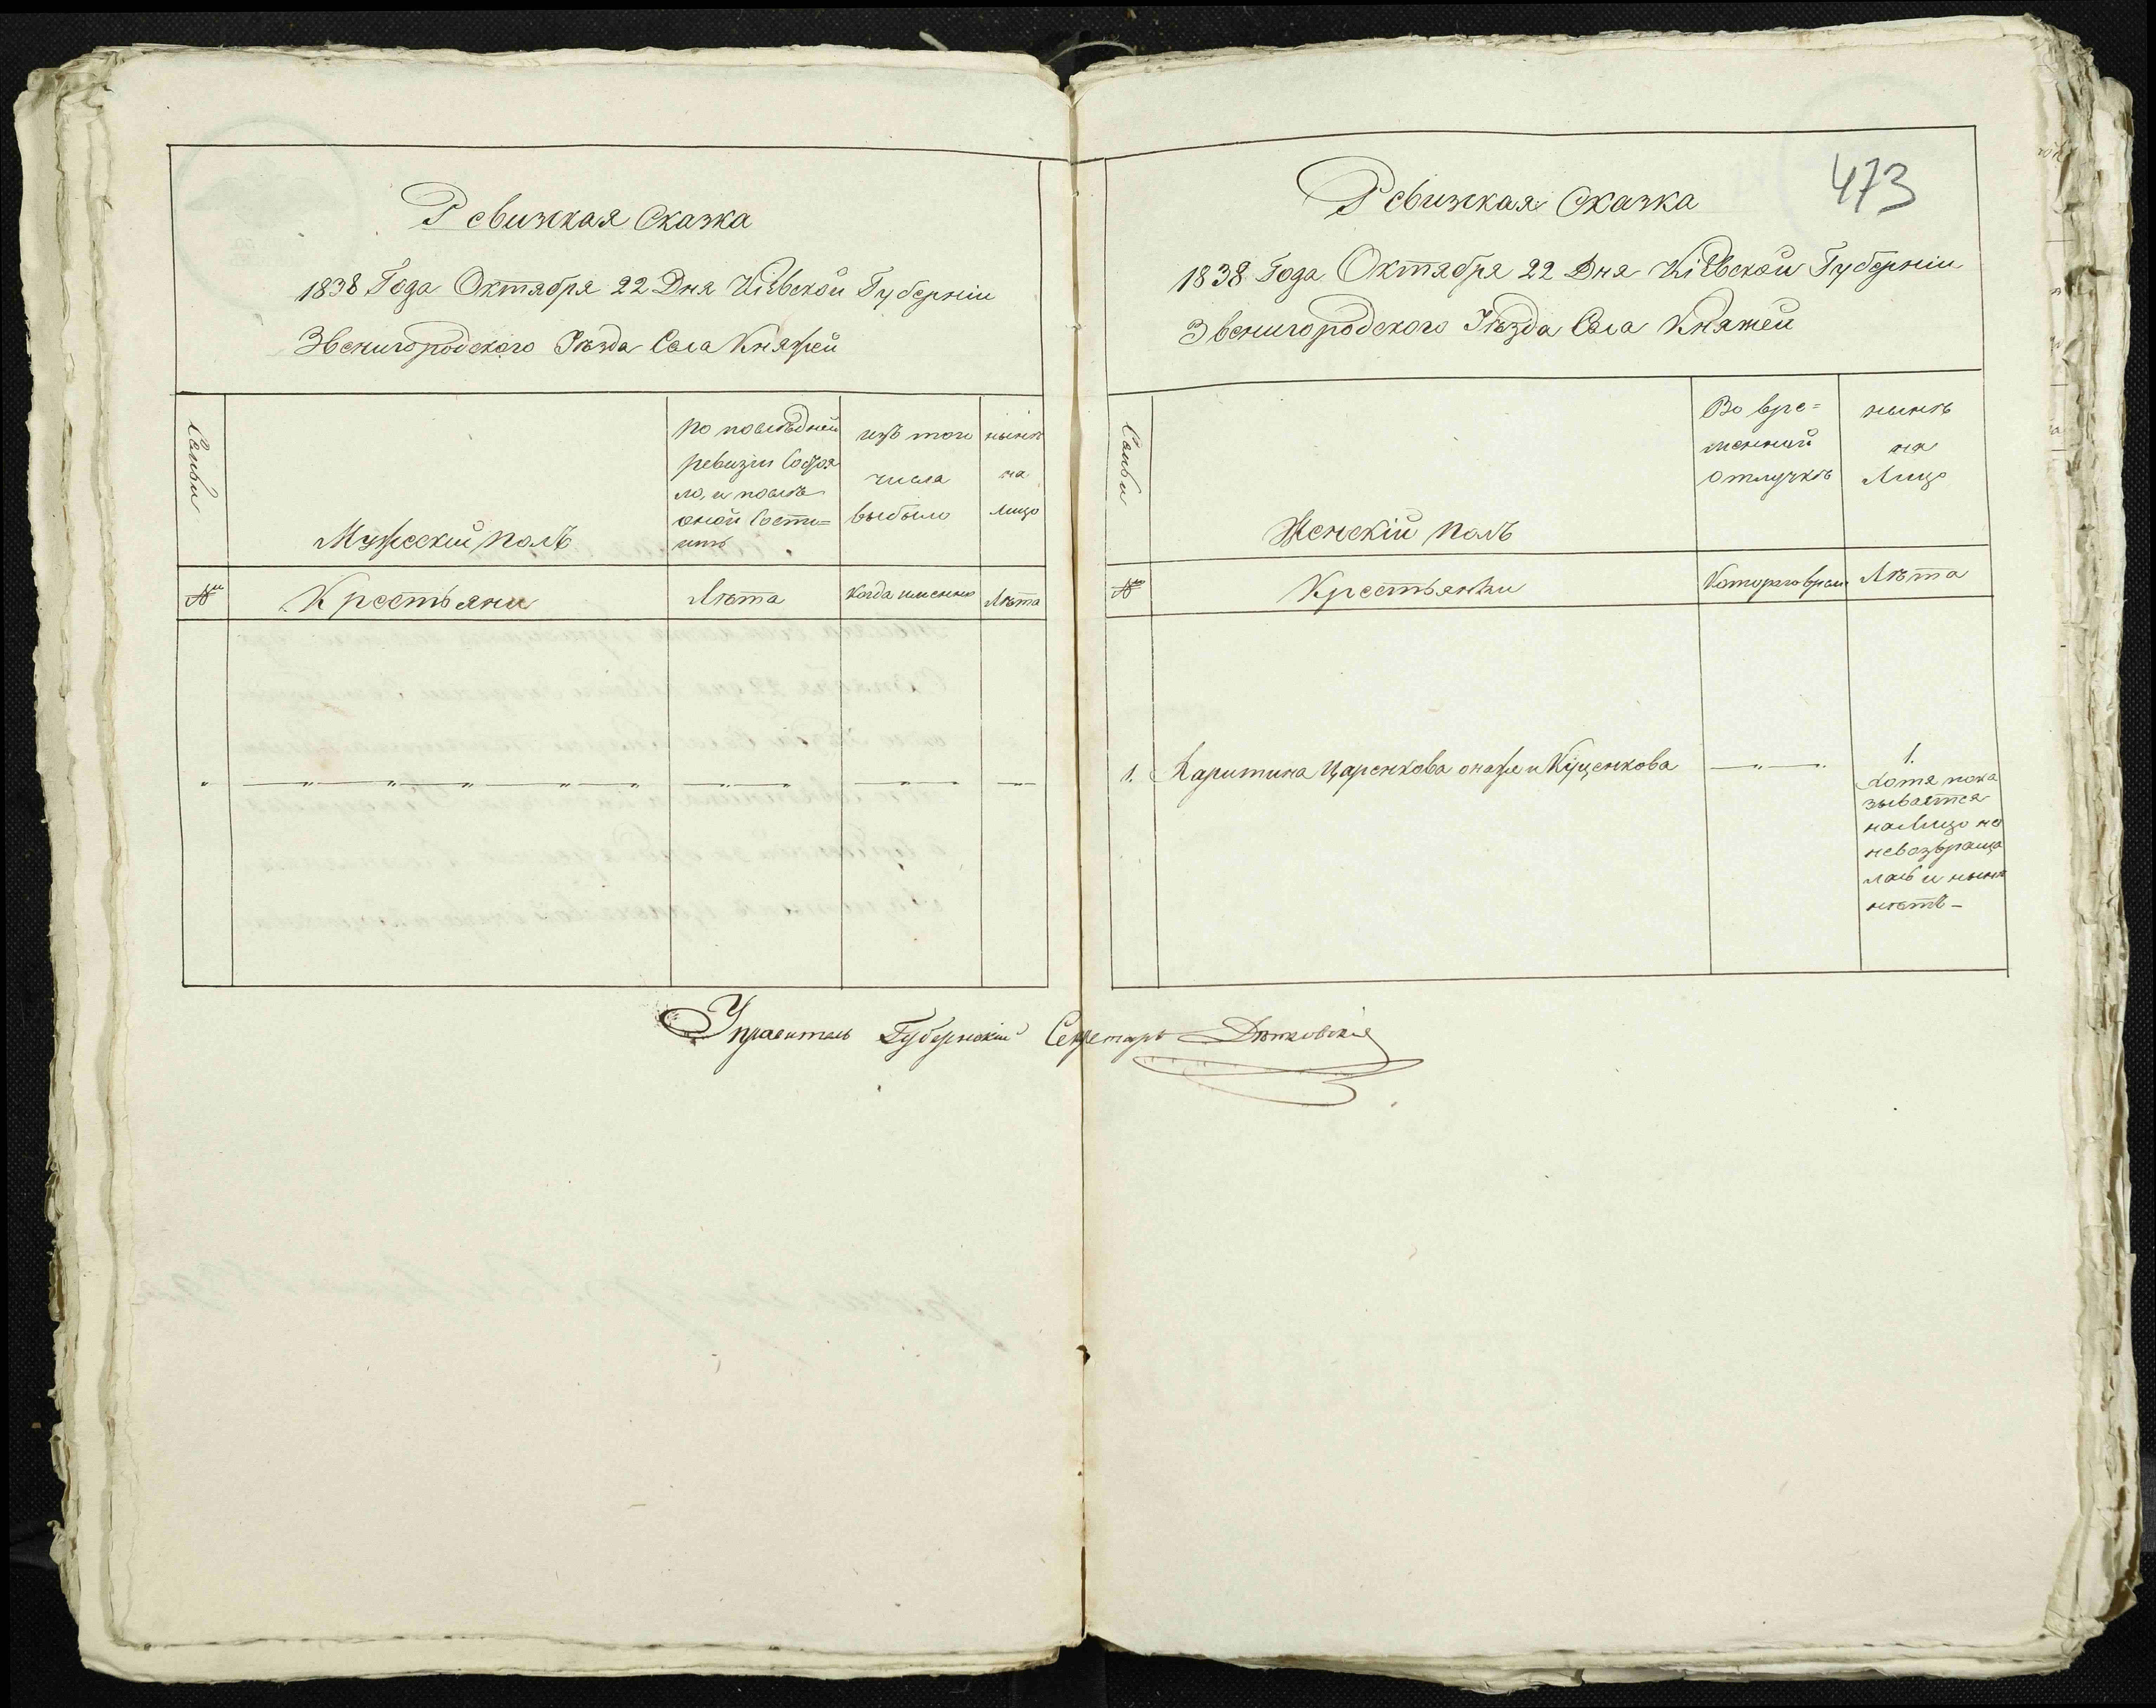 Ревижкая Сказка
1838 Года Октября 22 Дня Кіевской Губерніи
Звенигородского Уѣзда Села Княжей
Семьи
Мужескій полъ
по последней
ревизіи Состоя
ло, и послѣ
оной Состо=
итъ
изъ того
числа
выбыло
нынѣ
на
лицо
№
Крестьяни
Лѣта
Когда именно
Лѣта
473
Ревижкая Сказка
1838 Года Октября 22 Дня Кіевской Губерніи
Звенигородского Уѣзда Села Княжей
Семьи
Женскій полъ
Во вре=
менной
отлучкѣ
нынѣ
на
Лицо
№
Крестьянки
Котораго врем
Лѣта
1. Харитина Царенкова она же и Куценкова
1.
хотя пока
зывается
на Лицо но
невозвраща
лась и нынѣ
нѣтъ -
Управитель Губернскій Секретарь